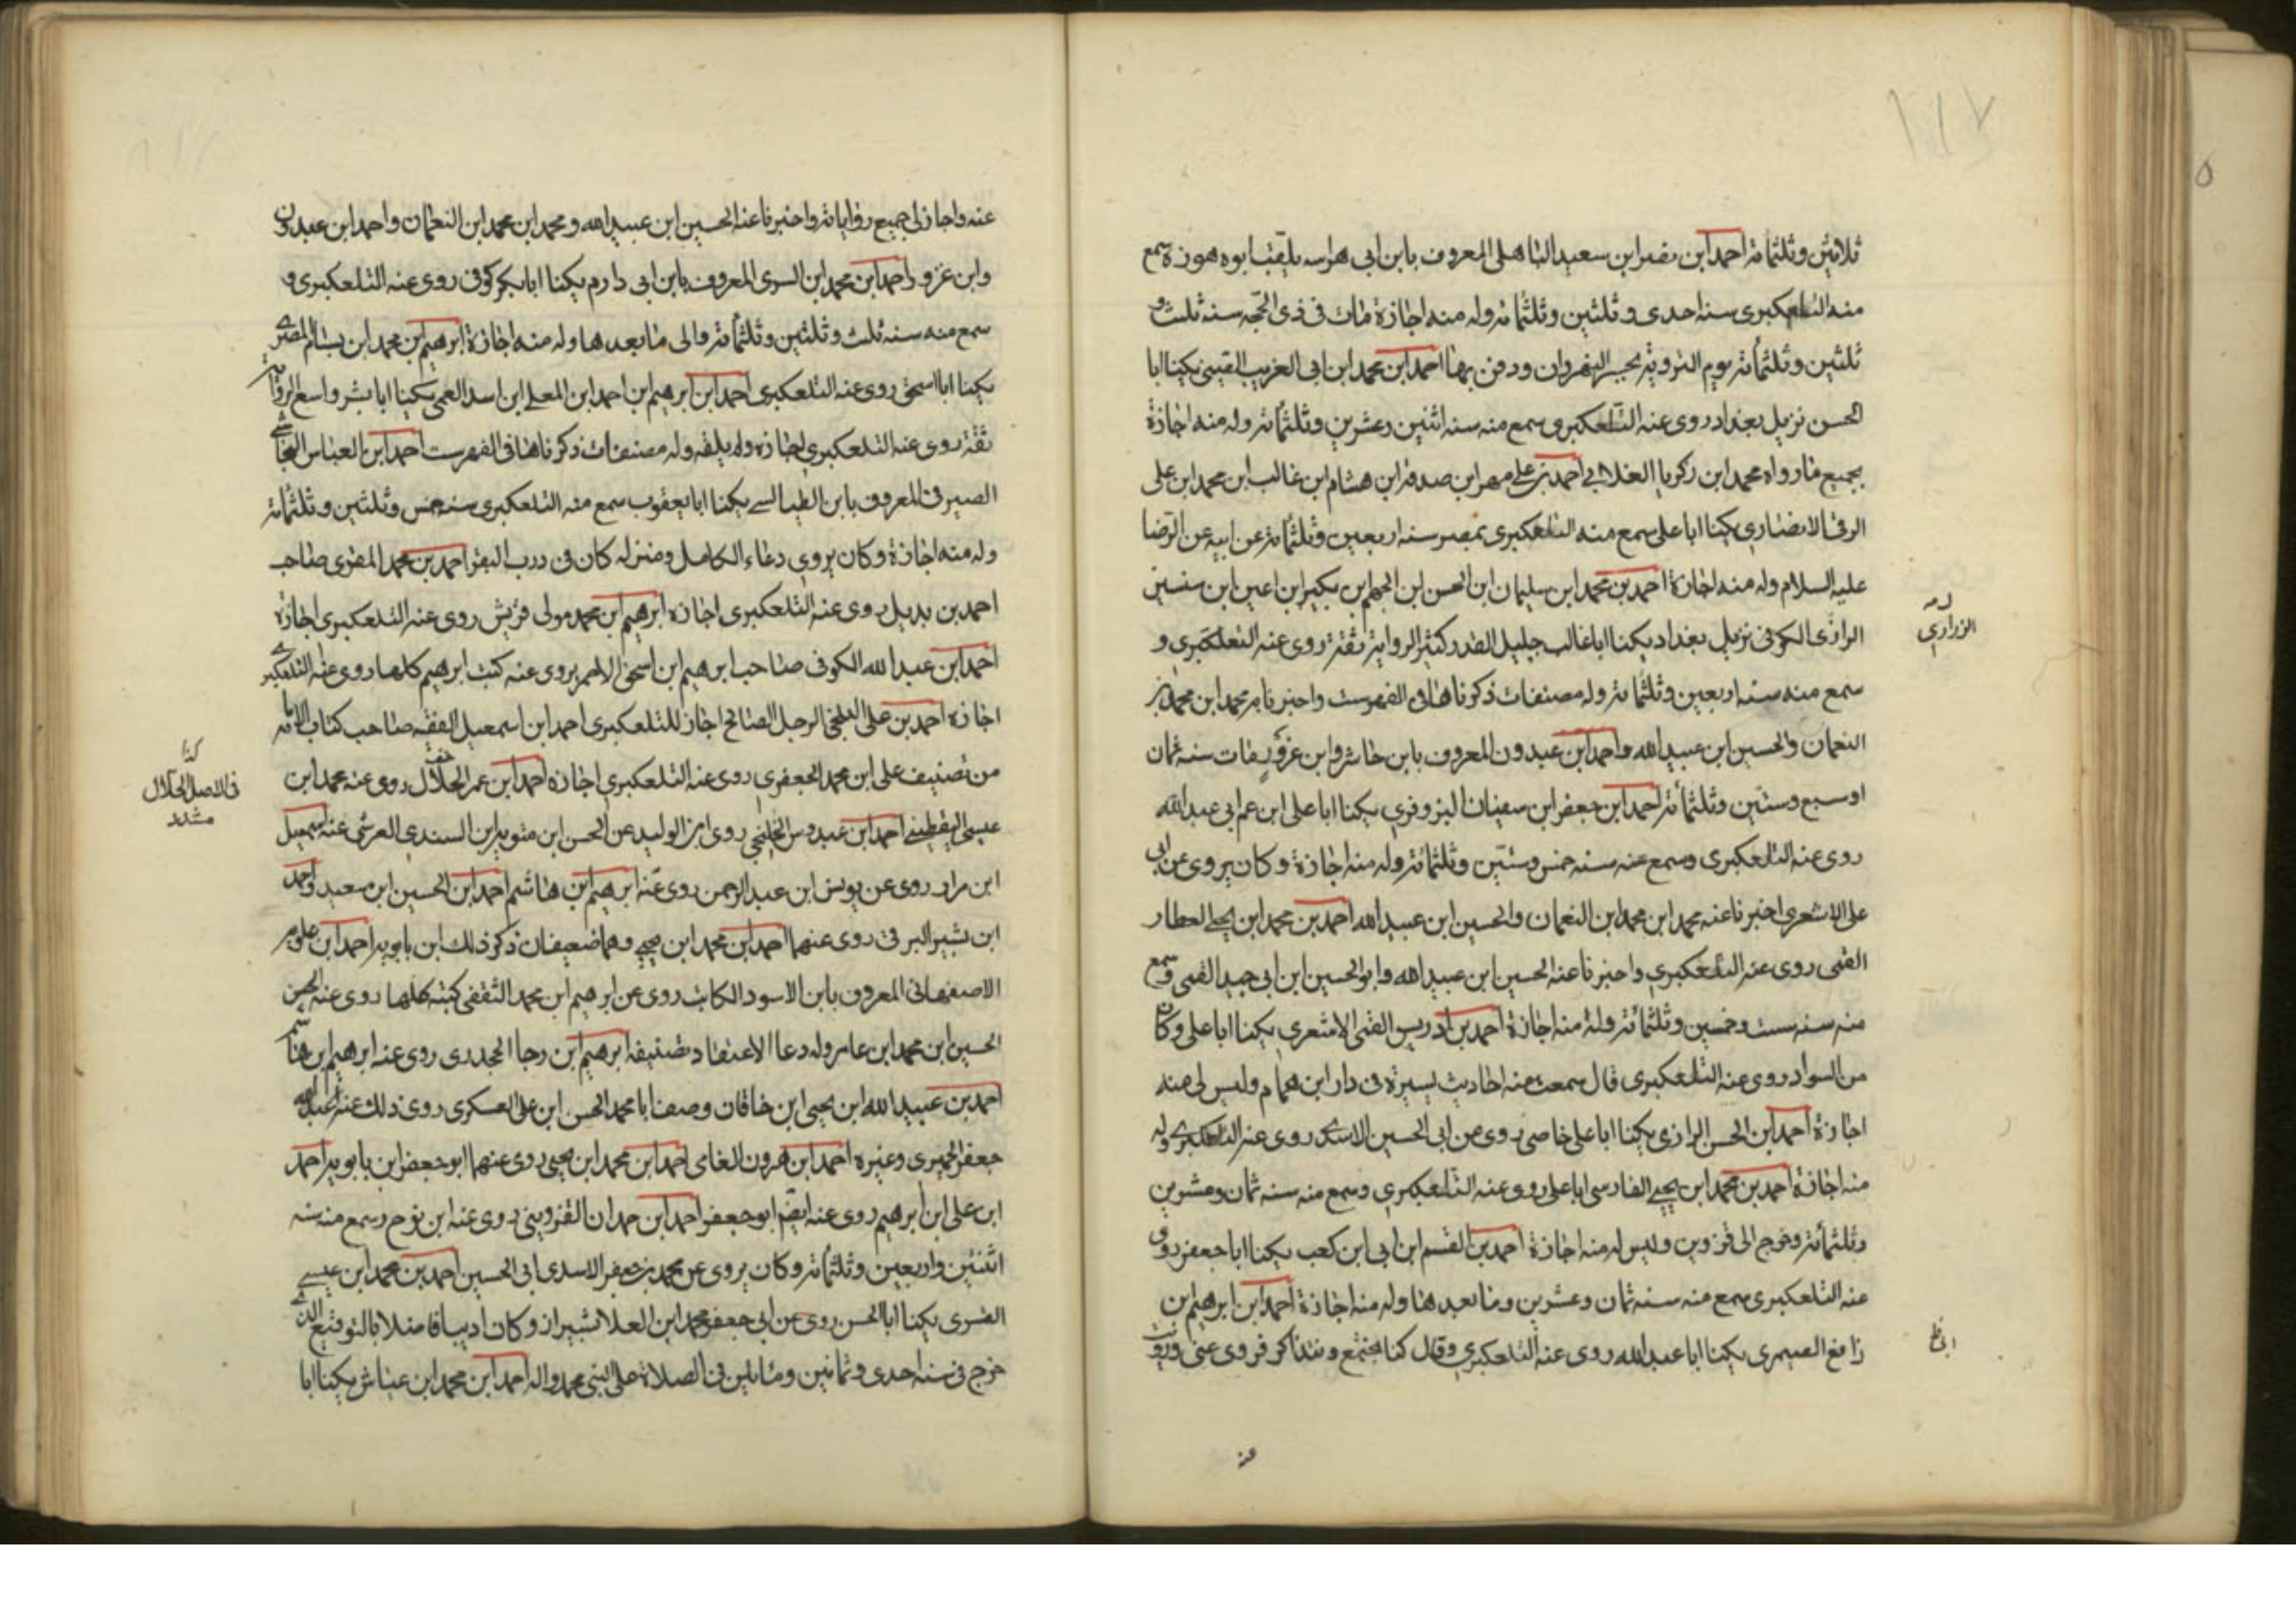 ١١٧
ثلاثين وثلثمائة احمد ابن نصر ابن سعيد الباهلى المعروف بابن ابى هراسه يلقب ابوه هوزة سمع
منه التلعكبرى سنه احدى وثلثين وثلثمائه وله منه اجازة مات فى ذى الحجه سنه ثلث و
ثلثين وثلثمائه يوم الترويه بجسر النهروان ودفن بها احمد ابن محمد ابن ابى الغريب القينى يكنا ابا
الحسن نزيل بغداد روى عنه التلعكبرى سمع منه سنه اثنين وعشرين وثلثمائه وله منه اجازة
بجميع ما رواه محمد ابن زكريا الغلابى احمد بن على مهر ابن صدقه ابن هشام ابن غالب ابن محمد ابن على
الرقى الانصارى يكنا ابا على سمع منه التلعكبرى بمصر سنه اربعين وثلثمائه عن ابيه عن الرضا
عليه السلام وله منه اجازة احمد بن محمد ابن سليمان ابن الحسن ابن الجهم ابن بكير ابن اعين ابن سنسن
الرازى الكوفى نزيل بغداد يكنا ابا غالب جليل القدر كثير الرواية ثقة روى عنه التعلكبرى و
له
الزرارى
سمع منه سنه اربعين وثلثمائه وله مصنفات ذكرناها فى الفهرست واخبرنا به محمد ابن محمد بن
النعمان والحسين ابن عبيد الله واحمد ابن عبدون المعروف بابن حاشر وابن عزور مات سنه ثمان
او سبع وستين وثلثمائة احمد ابن جعفر ابن سفينان البزوفرى يكنا ابا على ابن عم ابى عبد الله
روى عنه التلعكبرى وسمع عنه سنه خمس وستين وثلثمائه وله منه اجازة وكان يروى عن ابى
على الاشعرى اخبرنا عنه محمد ابن محمد ابن النعمان والحسين ابن عبيد الله احمد بن محمد ابن يحيى العطار
القمى روى عنه التلعكبرى واخبرنا عنه الحسين ابن عبيد الله وابو الحسين ابن ابى جيد القمى وسمع
منه سنه ست وخمسين وثلثمائه وله منه اجازة احمد بن ادريس القمى الاشعرى يكنا ابا على وكان
من السواد روى عنه التلعكبرى قال سمعت منه احاديث يسيرة فى دار ابن همام وليس لى منه
اجازة احمد ابن الحسن الرازى يكنا ابا على خاصى روى عن ابى الحسين الاسدى روى عنه التلعكبرى وله
منه اجازة احمد بن محمد ابن يحيى الفارسى ابا على روى عنه التلعكبرى وسمع منه سنه ثمان وعشرين
وثلثمائه وخرج الى قزوين وليس له منه اجازة احمد بن القسم ابن ابى ابن كعب يكنا ابا جعفر روى
عنه التلعكبرى سمع منه سنه ثمان وعشرين وما بعدها وله منه اجازة احمد ابن ابرهيم ابن
رافع الصيمرى يكنا ابا عبد الله روى عنه التلعكبرى وقال كنا نجتمع ونتذاكر فروى عنى ورويت
عنه
عنه واجاز لى جميع رواياته واخبرنا عنه الحسين ابن عبيد الله ومحمد ابن محمد ابن النعمان واحمد ابن عبدون
وابن عزور احمد ابن محمد ابن السرى المعروف بابن ابى دارم يكنا ابا بكر كوفى روى عنه التلعكبرى و
سمع منه سنه ثلث وثلثين وثلثمائه والى ما بعدها وله منه اجازة ابرهيم بن محمد ابن بسام المصرى
يكنا ابا اسحق روى عنه التلعكبرى احمد ابن ابرهيم ابن احمد ابن المعلى ابن اسد العمى يكنا ابا بشر واسع الرواية
ثقة روى عنه التلعكبرى اجازه ولم يلقه وله مصنفات ذكرناها فى الفهرست احمد ابن العباس النجاشى
الصيرفى المعروف بابن الطيالسى يكنا ابا يعقوب سمع منه التلعكبرى سنه خمس وثلثين وثلثمائه
وله منه اجازة وكان يروى دعاء الكامل ومنزله كان فى درب البقر احمد بن محمد المقرى صاحب
احمد بن بديل روى عنه التلعكبرى اجازه ابرهيم ابن محمد مولى قريش روى عنه التلعكبرى اجازة
احمد ابن عبد الله الكوفى صاحب ابرهيم ابن اسحق الاحمر يروى عنه كتب ابرهيم كلها روى عنه التلعكبرى
اجازه احمد بن على البلخى الرجل الصالح اجاز للتلعكبرى احمد ابن اسمعيل الفقيه صاحب كتاب الامامه
من تصنيف على ابن محمد الجعفرى روى عنه التلعكبرى اجازه احمد ابن عمر الحلال روى عنه محمد ابن
كذا
فى الاصل الحلال
مشدد
عيسى اليقطينى احمد ابن عبدوس الخلنجى روى ابن الوليد عن الحسن ابن متويه ابن السندى القرشى عنه اسمعيل
ابن مرار روى عن يونس ابن عبد الرحمن روى عنه ابرهيم ابن هاشم احمد ابن الحسين ابن سعيد واحمد
ابن بشير البرقى روى عنهما احمد ابن محمد ابن يحيى وهما ضعيفان ذكر ذلك ابن بابويه احمد ابن علويه
الاصفهانى المعروف بابن الاسود الكاتب روى عن ابرهيم ابن محمد الثقفى كتبه كلها روى عنه الحسن
الحسين ابن محمد ابن عامر وله دعا الاعتقاد تصنيفه ابرهيم ابن رجا الجحدرى روى عنه ابرهيم ابن هاشم
احمد بن عبيد الله ابن يحيى ابن خاقان وصف ابا محمد الحسن ابن على العسكرى روى ذلك عنه عبد الله
جعفر الحميرى وغيره احمد ابن هرون الفامى احمد ابن محمد ابن يحيى روى عنهما ابو جعفر ابن بابويه احمد
ابن على ابن ابرهيم روى عنه ايضا ابو جعفر احمد ابن حمدان القزوينى روى عنه ابن نوح وسمع منه سنه
اثنتين واربعين وثلثمائه وكان يروى عن محمد بن جعفر الاسدى ابى الحسين احمد بن محمد ابن عيسى
القسرى يكنا ابا الحسن روى عن ابى جعفر محمد ابن العلا بشيراز وكان اديبا فاضلا بالتوقيع الذى
خرج فى سنه احدى وثمانين ومائتين فى الصلاة على النبى محمد واله احمد ابن محمد ابن عياش يكنا ابا